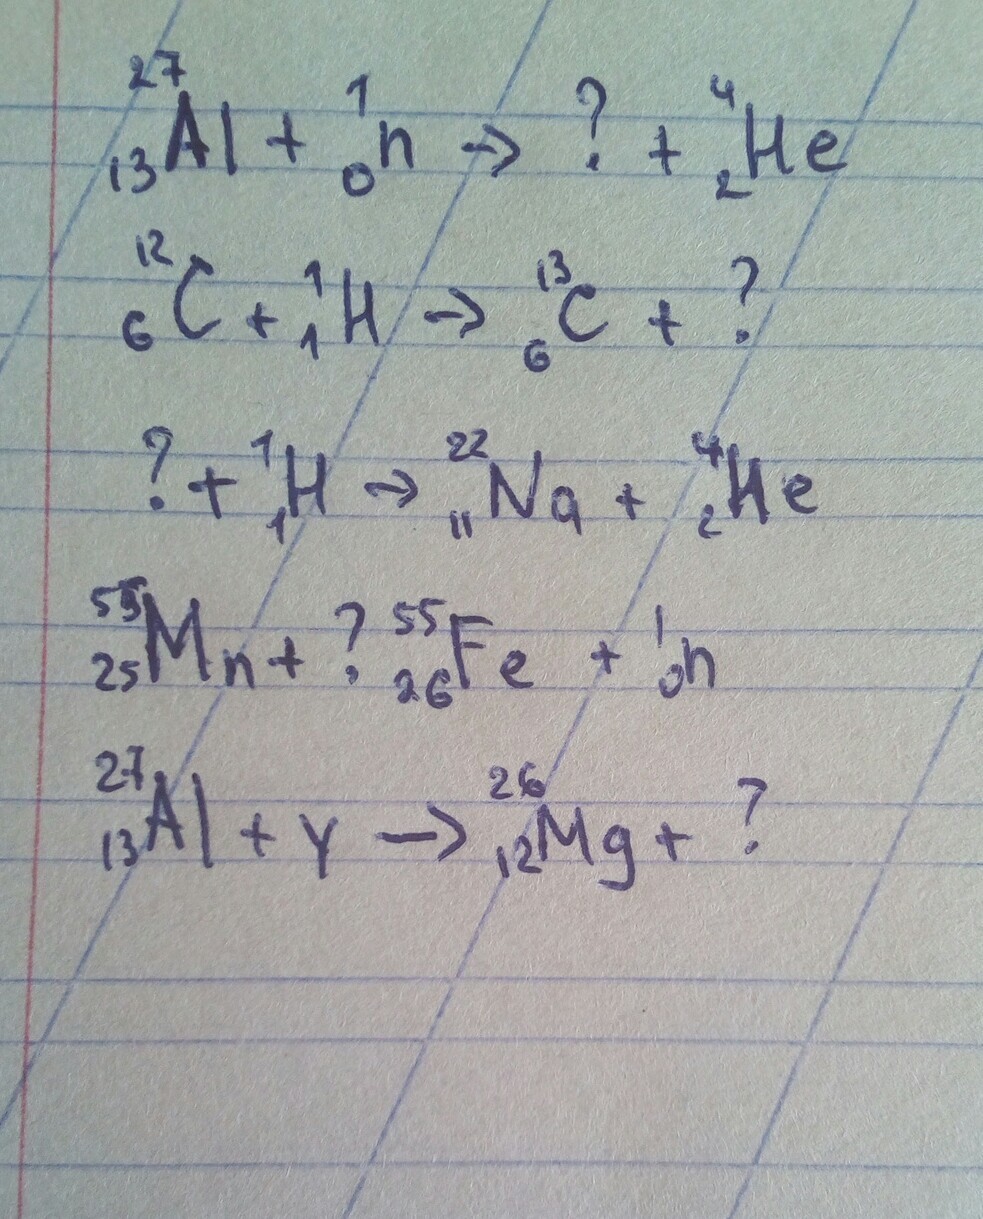 ²⁷₁₃Al + ¹₀n → ? + ⁴₂He
¹²₆C + ¹₁H → ¹³₆C + ?
? + ¹₁H → ²²₁₁Na + ⁴₂He
⁵⁵₂₅Mn + ? ⁵⁵₂₆Fe + ¹₀n
²⁷₁₃Al + γ → ²⁶₁₂Mg + ?